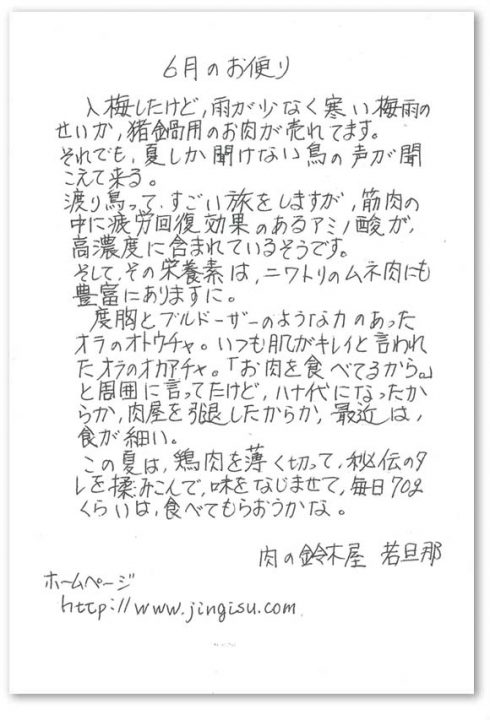 6月のお便り
入梅したけど,雨が少なく寒い梅雨の
せいか,猪鍋用のお肉が売れてます。
それでも,夏しか聞けない鳥の声が聞
こえて来る。
渡り鳥って,すごい旅をしますが,筋肉の
中に疲労回復効果のあるアミノ酸が,
高濃度に含まれているそうです。
そして,その栄養素は,ニワトリのムネ肉にも
豊富にありますに。
度胸とブルドーザーのような力のあった
オラのオトウチャ。いつも肌がキレイと言われ
たオラのオカアチャ。「お肉を食べてるから。」
と周囲に言ってたけど,ハナ代になったか
らか,肉屋を引退したからか,最近は,
食が細い。
この夏は,鶏肉を薄く切って,秘伝のタ
レを揉みこんで,味をなじませて,毎日70g
くらいは,食べてもらおうかな。
肉の鈴木屋 若旦那
ホームページ
http://www.jingisu.com